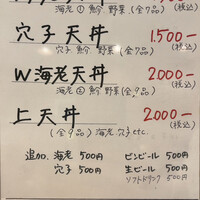 海老① 魚介 野菜 (全7品) (税込)
穴子天丼 1.500ー
穴子 魚介 野菜 (全7品) (税込)
W海老天丼 2000ー
海老② 魚介 野菜 (全9品) (税込)
上天丼 2000ー
(全9品) 海老 穴子 etc. (税込)
追加. 海老 500円 ビンビール 500円
穴子 500円 生ビール 500円
ソフトドリンク 300円